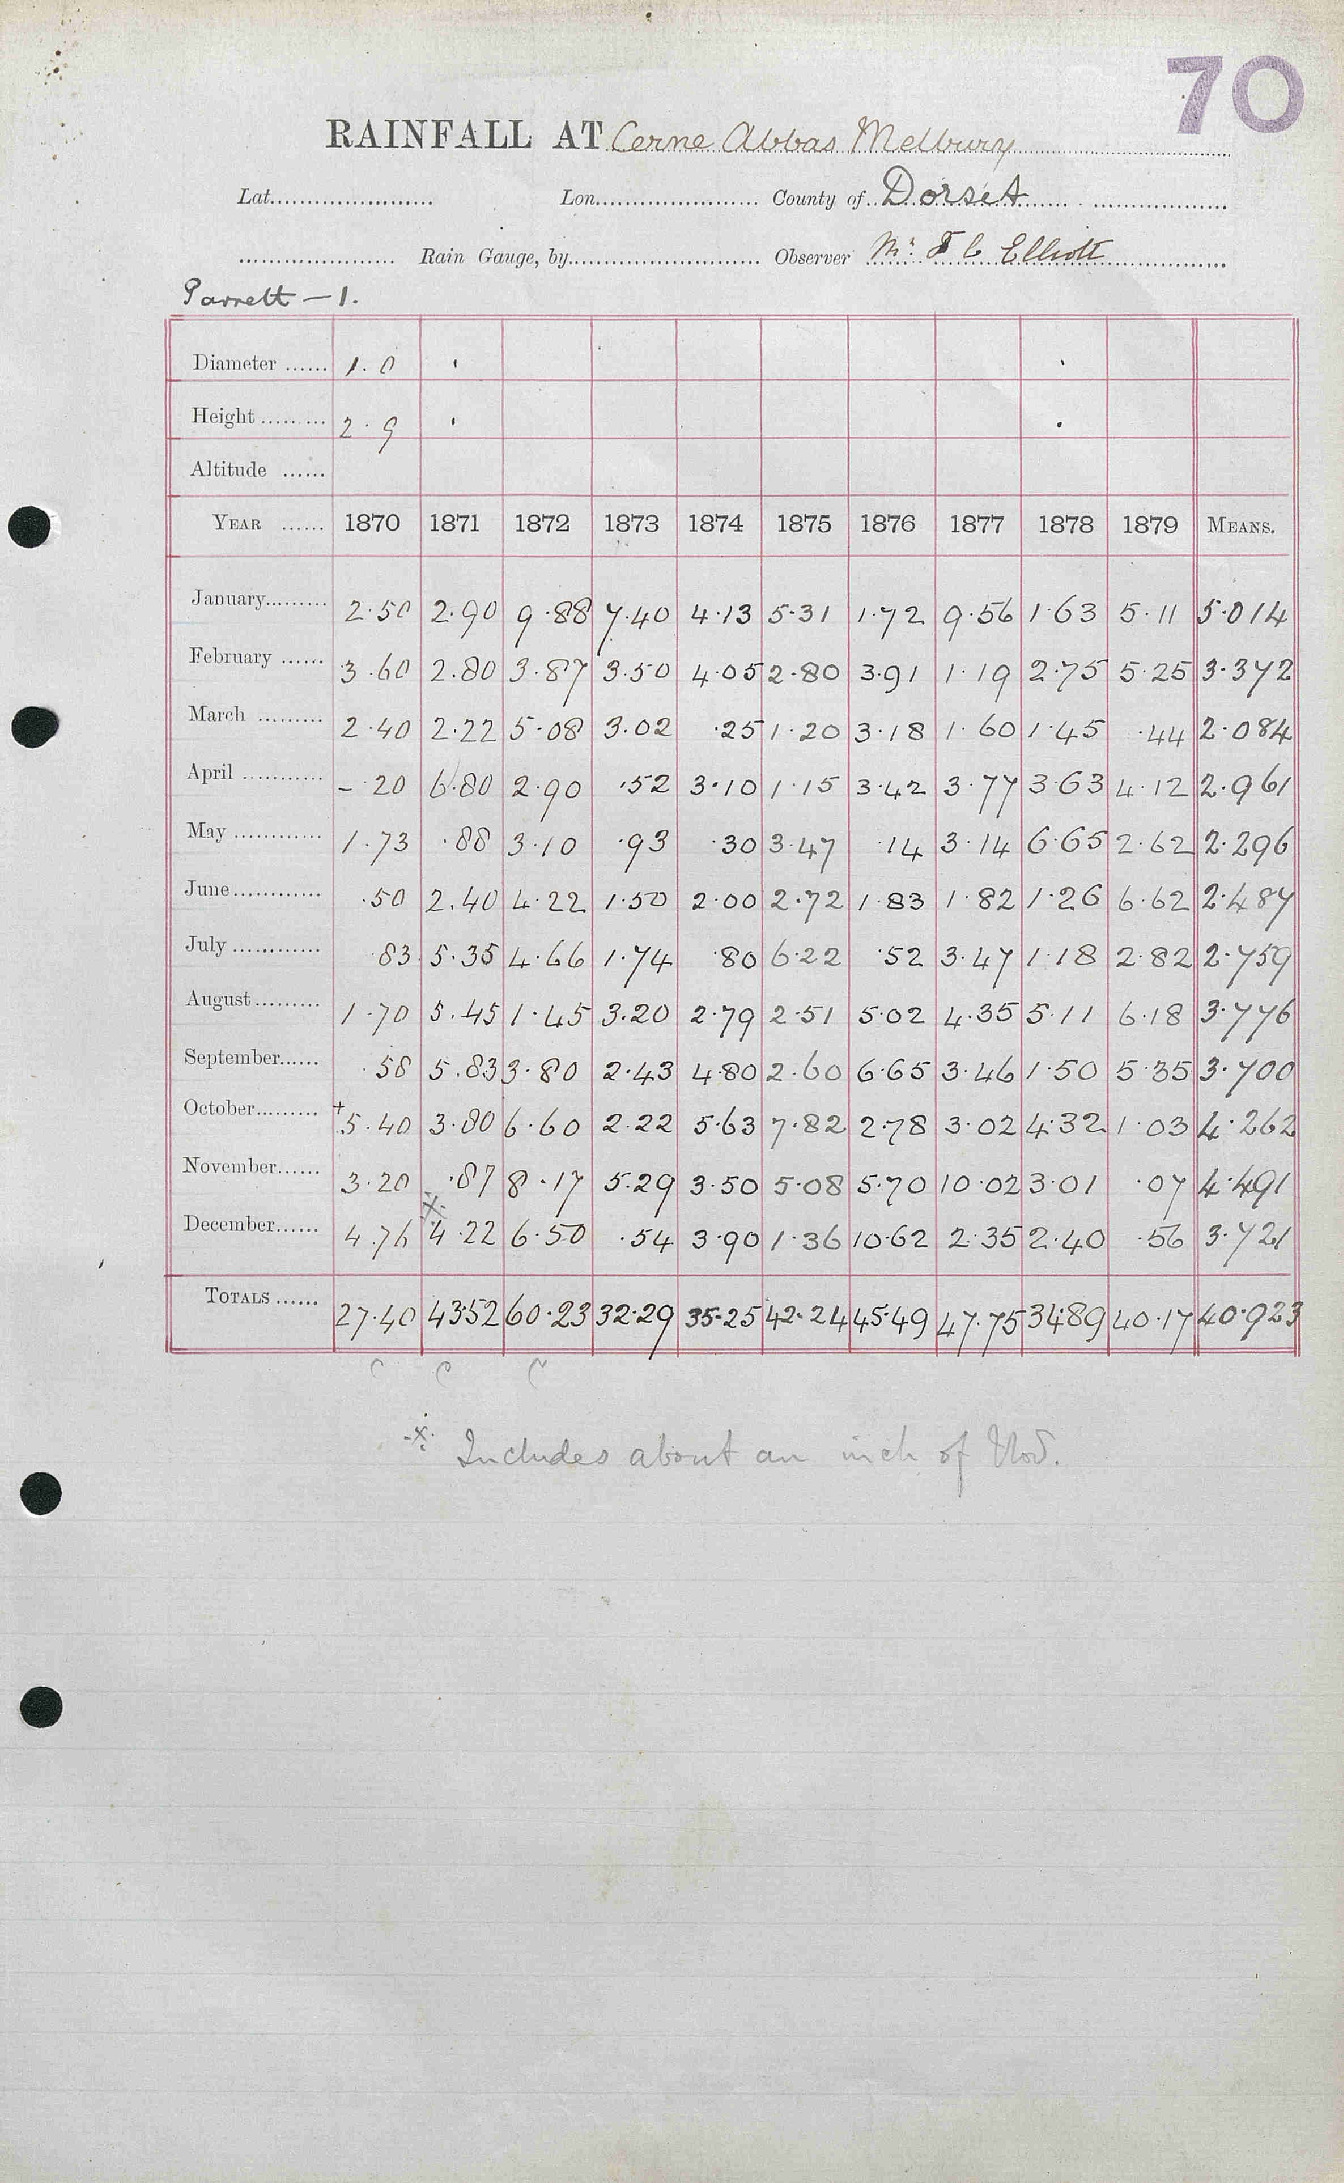 70
RAINFALL AT Cerne Abbas Melbury
Lat. Lon. County of Dorset
Rain Gauge, by Observer Mr. F C Elliott
Parrett — 1.
Diameter 1.0 ' .
Height 2.9 ' .
Altitude
YEAR 1870 1871 1872 1873 1874 1875 1876 1877 1878 1879 MEANS.
January 2.50 2.90 9.88 7.40 4.13 5.31 1.72 9.56 1.63 5.11 5.014
February 3.60 2.80 3.87 3.50 4.05 2.80 3.91 1.19 2.75 5.25 3.372
March 2.40 2.22 5.08 3.02 .25 1.20 3.18 1.60 1.45 .44 2.084
April - .20 6.80 2.90 .52 3.10 1.15 3.42 3.77 3.63 4.12 2.961
May 1.73 .88 3.10 .93 .30 3.47 .14 3.14 6.65 2.62 2.296
June .50 2.40 4.22 1.50 2.00 2.72 1.83 1.82 1.26 6.62 2.487
July .83 5.35 4.66 1.74 .80 6.22 .52 3.47 1.18 2.82 2.759
August 1.70 5.45 1.45 3.20 2.79 2.51 5.02 4.35 5.11 6.18 3.776
September .58 5.83 3.80 2.43 4.80 2.60 6.65 3.46 1.50 5.35 3.700
October +5.40 3.80 6.60 2.22 5.63 7.82 2.78 3.02 4.32 1.03 4.262
November 3.20 .87 8.17 5.29 3.50 5.08 5.70 10.02 3.01 .07 4.491
December 4.76 ※ 4.22 6.50 .54 3.90 1.36 10.62 2.35 2.40 .56 3.721
TOTALS 27.40 43.52 60.23 32.29 35.25 42.24 45.49 47.75 34.89 40.17 40.923
c c c
※ Includes about an inch of Nov.